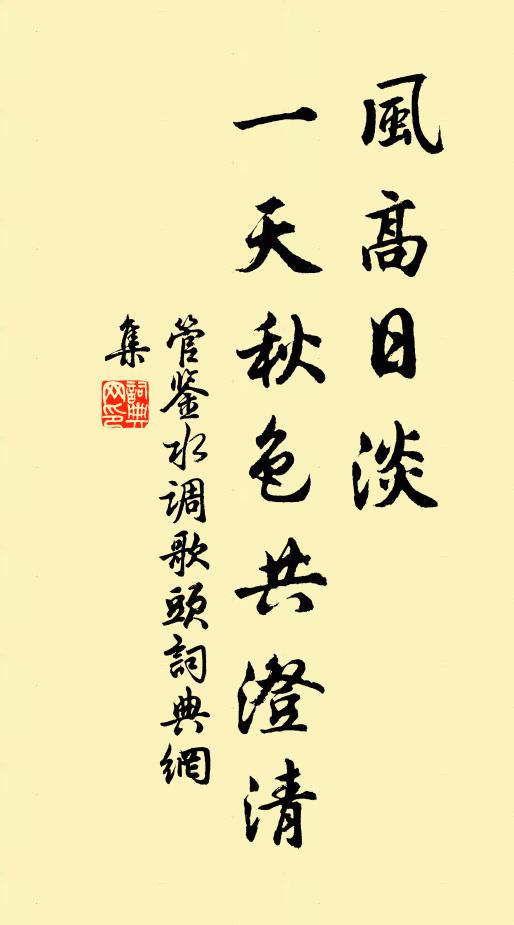 風高日淡
一天秋色共澄清
管鉴水调歌頭詞典網
集
詞典网印